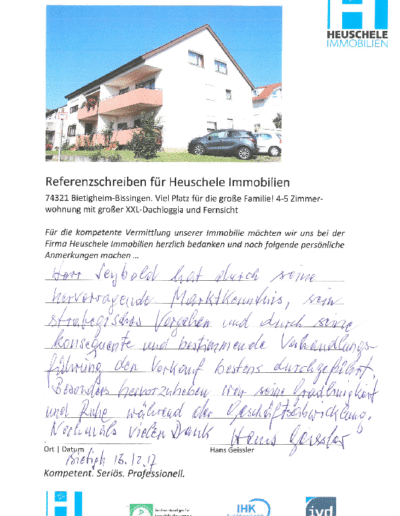 HEUSCHELE
IMMOBILIEN
Referenzschreiben für Heuschele Immobilien
74321 Bietigheim-Bissingen. Viel Platz für die große Familie! 4-5 Zimmer-
wohnung mit großer XXL-Dachloggia und Fernsicht
Für die kompetente Vermittlung unserer Immobilie möchten wir uns bei der
Firma Heuschele Immobilien herzlich bedanken und noch folgende persönliche
Anmerkungen machen ...
Herr Seybold hat durch seine
hervorragende Marktkenntnis, sein
strategisches Vorgehen und durch seine
konsequente und bestimmende Verhandlungs-
führung den Verkauf bestens durchgeführt.
Besonders hervorzuheben war seine Gradlinigkeit
und Ruhe während der Geschäftsabwicklung.
Nochmals vielen Dank Hans Geissler
Ort | Datum Hans Geissler
Bietigh 18.12.17
Kompetent. Seriös. Professionell.
IHK
ivd